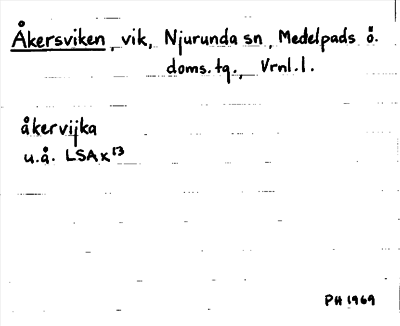 Åkersviken, vik, Njurunda sn, Medelpads ö.
doms.tg., Vrnl.l.
åkervijka
u.å. LSA x¹³
PH 1969